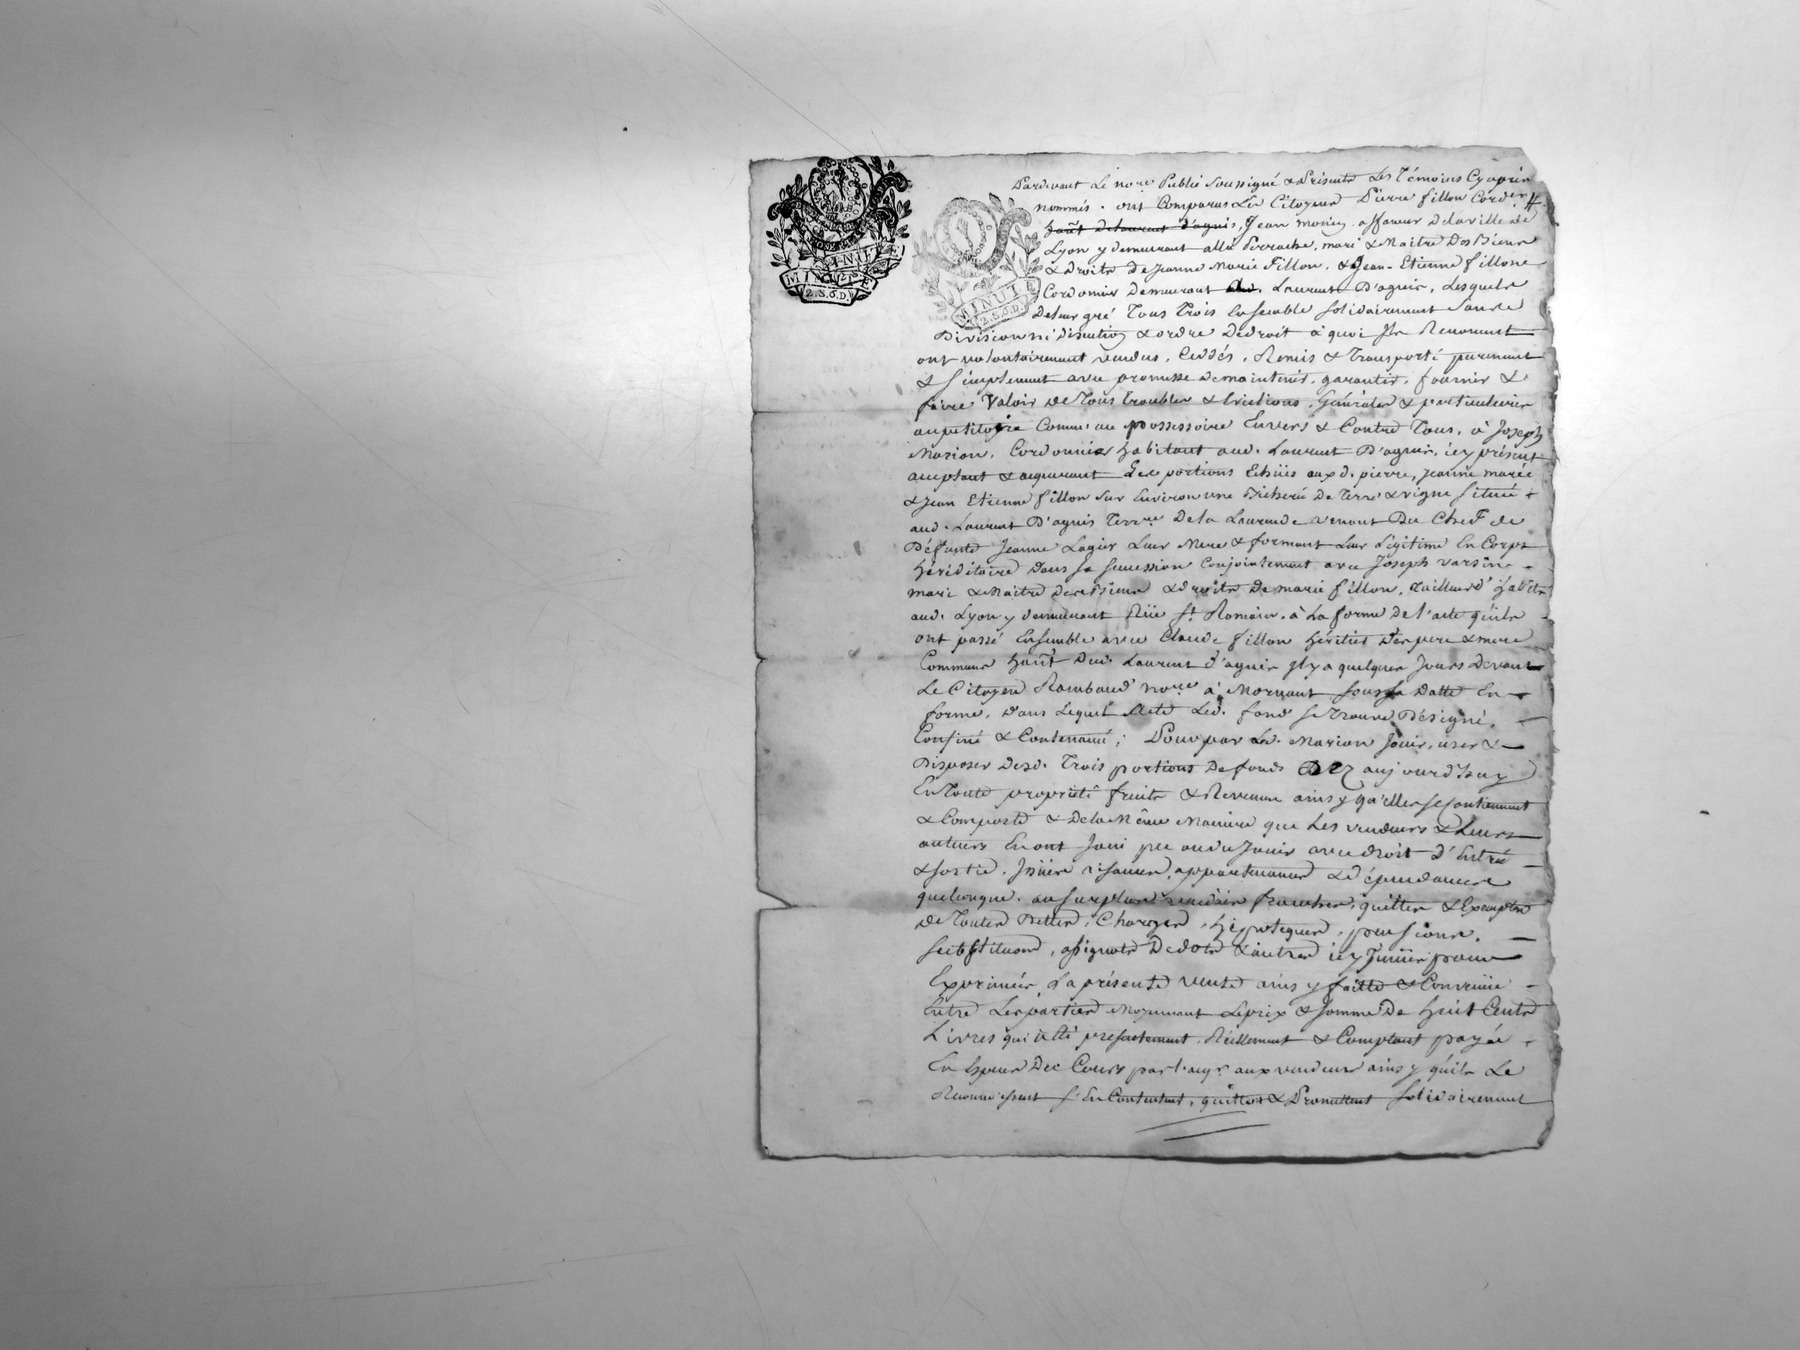 MINUTE
2.S.6.D.
MINUTE
2.S.6.D.
Pardevant Le no.re Public soussigné & Présents Les Témoins Cyaprès
nommés. ont Comparus Les Citoyens Pierre fillon Cordier #
haût de Laurent d'agnis, Jean affaneur de la ville de
Lyon y demeurant allé Perrache, mari & Maitre Des Biens
& droits de Jeanne Marie Fillon, & Jean-Etienne fillon
Cordonier Demeurant Laurent D'agnis, Lesquels
De leur gré Tous Trois Ensemble solidairement sans
Division ni discution & ordre De droit à quoi Ils Renoncent
ont volontairement vendus, Ceddés, Remis & Transporté purement
& simplement avec promesse de maintenir, garantir, fournir &
faire Valoir de Tous troubles & Evictions, Générales & particulieres
au petitoire Comme au possessoire Envers & Contre Tous, à Joseph
Marion, Cordonnier habitant aud. Laurent D'agnis, icy présent
acceptant & acquerant Les portions Echües auxd. pierre, jeanne marie
& Jean Etienne fillon sur Environ une Bicherée De Terre & vigne située
aud. Laurent D'agnis Terr.re De la venant Du Chef de
Défunte Jeanne Lagier Leur Mere & formant Leur Légitime En Corps
héréditaire Dans sa succession Conjointement avec Joseph varsin
mari & Maitre Des Biens & droits De marie fillon, Tailleur d'habits
aud. Lyon y demeurant Rüe S.t Romain, à La forme De l'acte qu'ils
ont passé Ensemble avec Claude fillon héritier Des pere & mere
Communs haût Dud. Laurent d'agnis Il y a quelques Jours Devant
Le Citoyen Rambaud no.re à Mornant sous sa Datte En
forme, Dans Lequel Acte Led. fond se Trouve Désigné,
Confiné & Contenancé; Pour par Led. Marion Jouir, user &
Disposer Desd. Trois portions De fonds Dez aujourd'huy
En Toute propriété fruits & Revenus ainsy qu'elles se Contiennent
& Comporte & De la Même Maniere que Les vendeurs & Leurs
auteurs En ont Joui pu ou du Jouir avec droit D'Entrée
& sortie, appartenances & Dépendances
quelconque. au surplus franches, quittes & Exemptes
de Toutes Dettes, Charges, hippoteques, pensions,
substitutions, assignats De dots & autres icy
Exprimées, La présente vente ainsy faitte & Convenüe
Entre Les parties Moyennant Le prix & somme De huit Cents
Livres qui à Eté présentement, Réellement & Comptant payée
En Especes Des Cours par l'aqr. aux vendeurs ainsy qu'ils Le
Reconnoissent s'En Contentent, quittent & Promettent solidairement